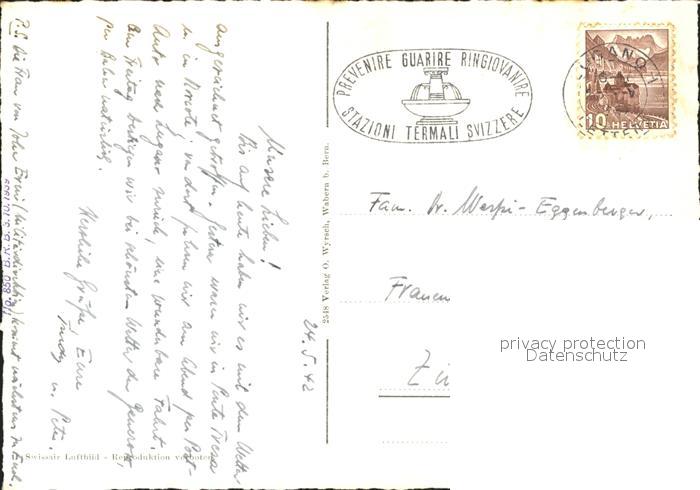 24. 5. 42
Unsere Lieben!
Bis auf heute haben wir es mit dem Wetter
ausgezeichnet getroffen. Gestern waren wir in Ponte Tresa
u. in Morcote, von dort fuhren wir am Abend per Post-
Auto nach Lugano zurück, eine wunderbare Fahrt.
Am Freitag bestiegen wir bei schönstem Wetter den Generoso,
per Bahn natürlich.
Herzliche Grüsse Eure
Trudy u. Peter.
P.S. die Frau von
PREVENIRE GUARIRE RINGIOVANIRE
STAZIONI TERMALI SVIZZERE
LUGANO 1
10 HELVETIA
Fam. Dr. Werfri-Eggenberger,
Frauen
Zü
2548 Verlag O. Wyrsch, Wabern b. Bern.
Swissair Luftbild - Reproduktion verboten
privacy protection
Datenschutz